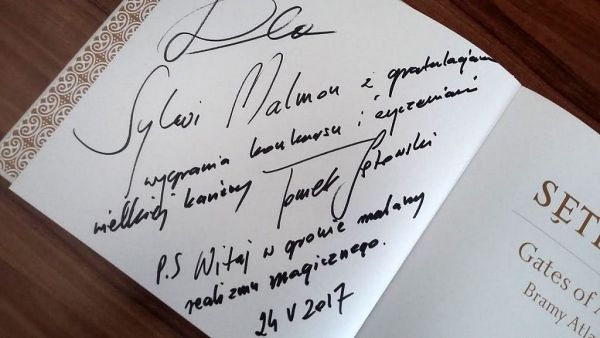 Dla
Sylwi Malmon z gratulacjami
wygrania konkursu i życzeniami
wielkiej kariery Tomek Sętowski
P.S Witaj w gronie malarzy
realizmu magicznego.
24 V 2017
SĘT
Gates of A
Bramy Atla